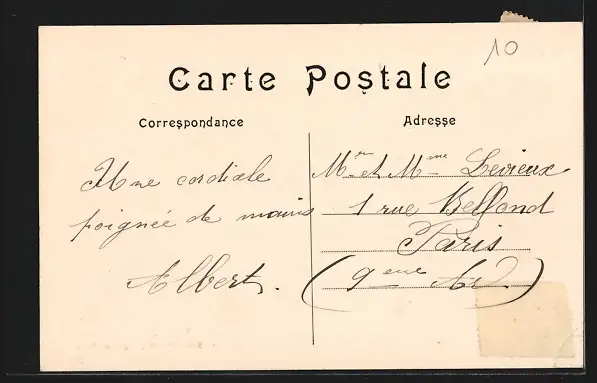 10
Carte Postale
Correspondance
Adresse
Une cordiale
poignée de mains
Albert.
Mr et Mme Levieux
1 rue Bellond
Paris
(9eme Ar)